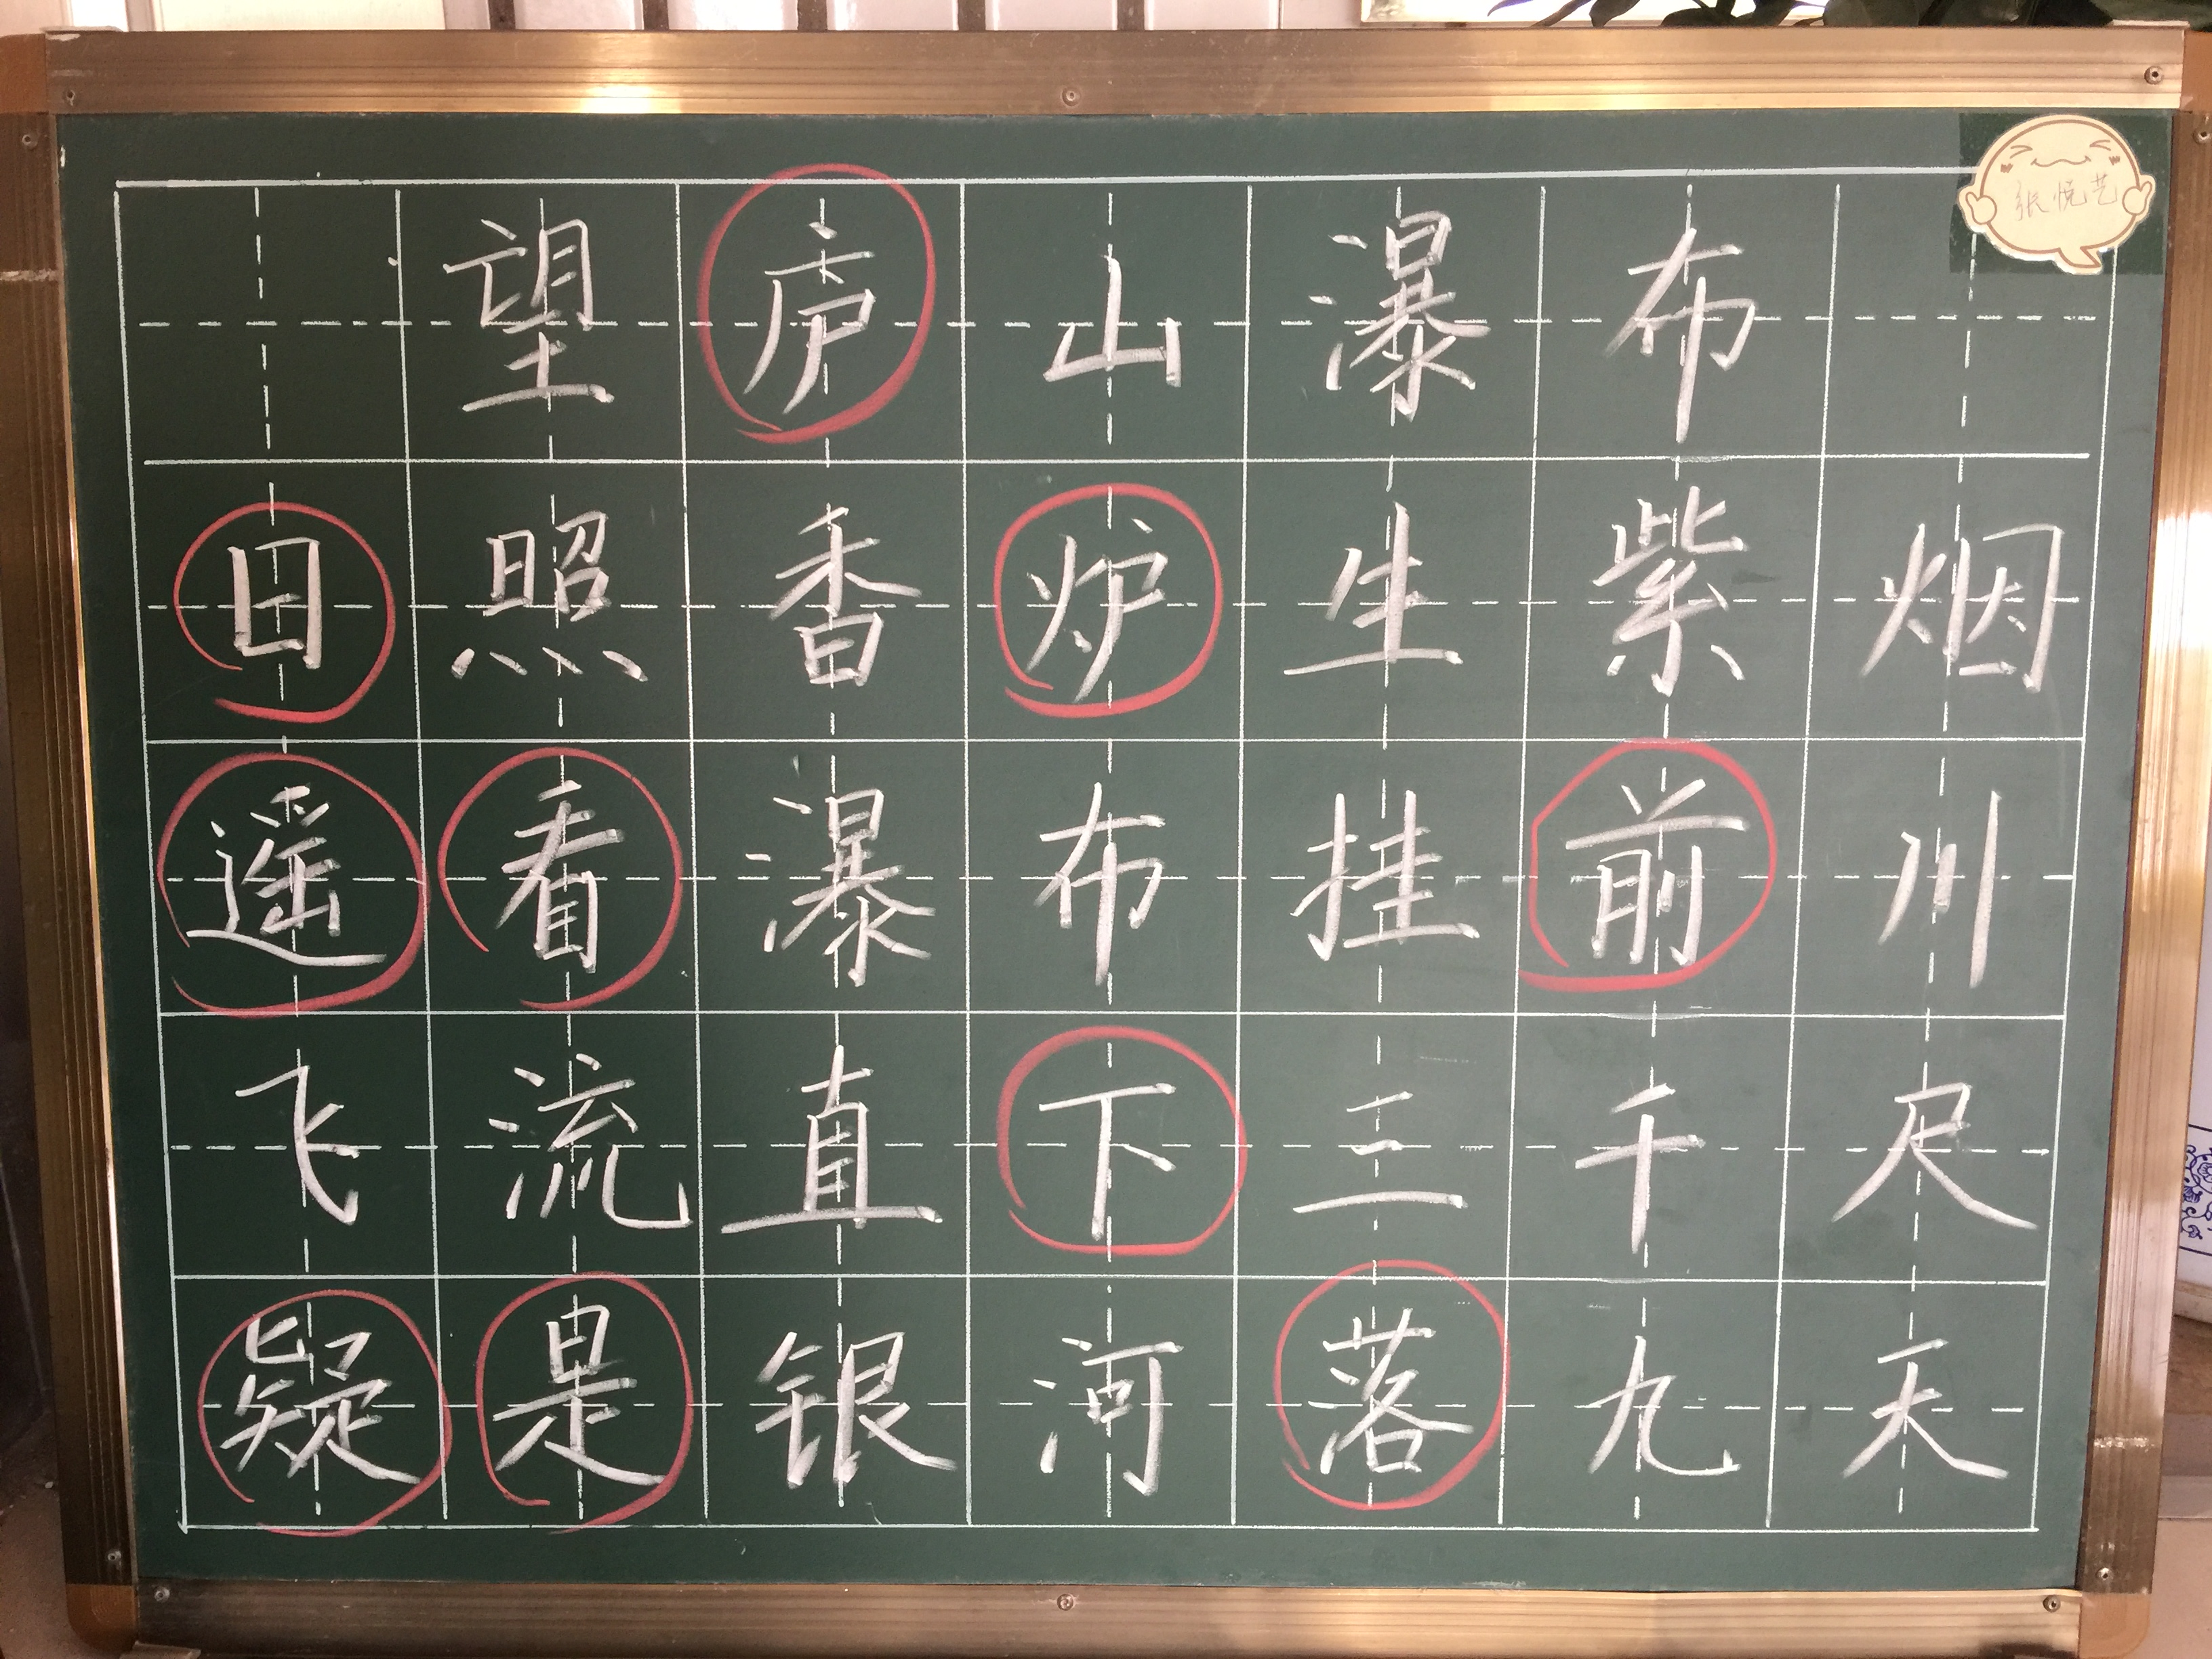 望庐山瀑布
张悦艺
日照香炉生紫烟
遥看瀑布挂前川
飞流直下三千尺
疑是银河落九天